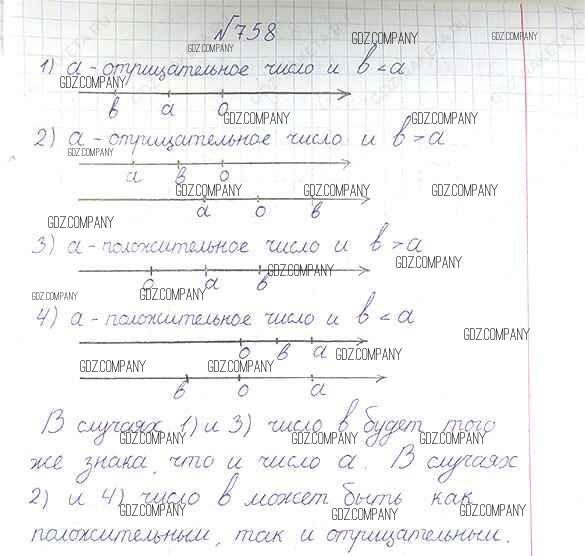 №758
GDZ.COMPANY GDZ.COMPANY GDZ.COMPANY
1) а - отрицательное число и в < а
GDZ.COMPANY
в а 0
GDZ.COMPANY GDZ.COMPANY
2) а - отрицательное число и в > а
GDZ.COMPANY
а в 0
GDZ.COMPANY GDZ.COMPANY GDZ.COMPANY
а 0 в
GDZ.COMPANY
3) а - положительное число и в > а
GDZ.COMPANY GDZ.COMPANY
0 а в
GDZ.COMPANY GDZ.COMPANY
4) а - положительное число и в < а
GDZ.COMPANY
0 в а
GDZ.COMPANY GDZ.COMPANY GDZ.COMPANY
в 0 а
В случаях 1) и 3) число в будет того
GDZ.COMPANY GDZ.COMPANY GDZ.COMPANY
же знака, что и число а. В случаях
2) и 4) число в может быть как
GDZ.COMPANY GDZ.COMPANY GDZ.COMPANY
положительным, так и отрицательным.